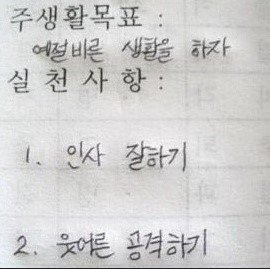 주생활목표 :
예절바른 생활을 하자
실천사항 :
1. 인사 잘하기
2. 웃어른 공격하기